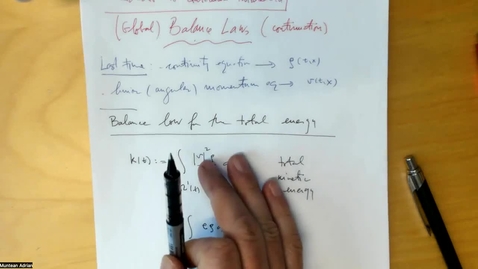 (Global) Balance Laws (continuation)
Last time: continuity equation → ρ(t,x)
linear (angular) momentum eq → v(t,x)
Balance law for the total energy
K(t) := ∫ |v|² ρ total
kinetic
energy
∫ eρ
Muntean Adrian